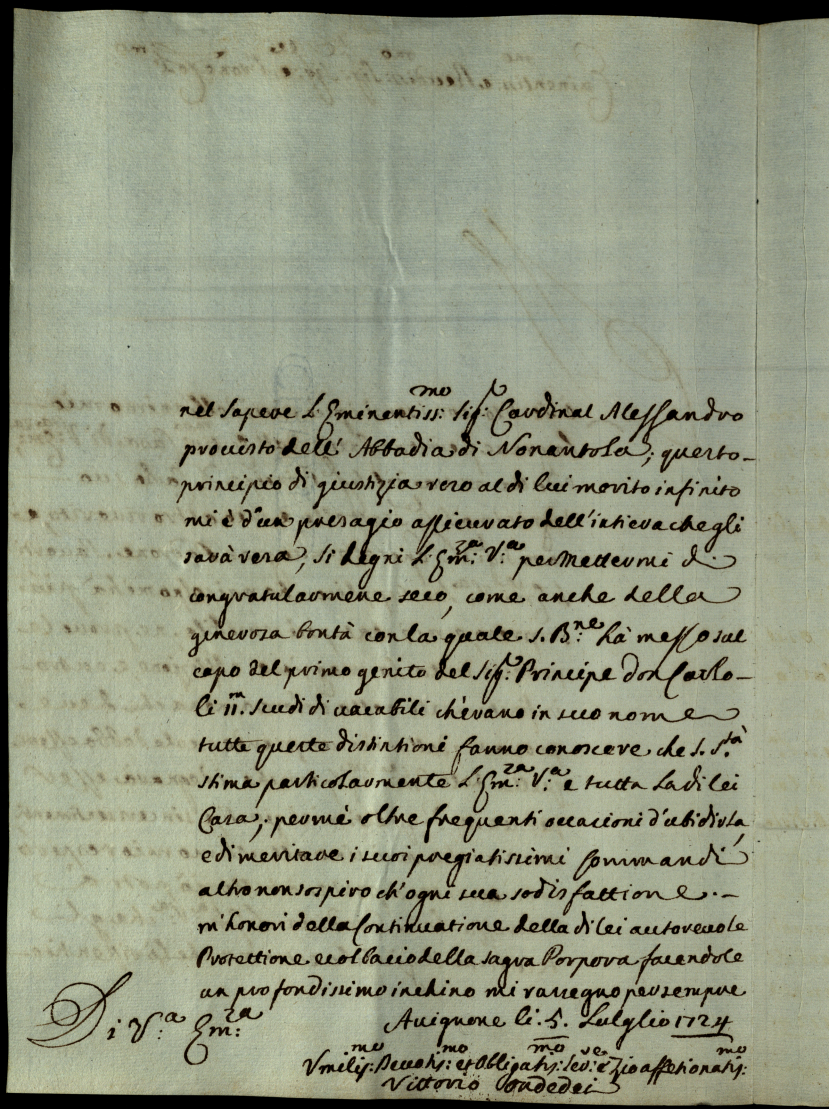 nel sapere L'Eminentiss:mo Sig:r Cardinal Alessandro
prouisto dell' Abbadia di Nonantola; questo
principio di giustizia reso al di lui merito infinito
mi è d'un presagio assicurato dell'intiera che gli
sarà resa, si degni L'Em:za V:a permettermi di
congratularmene seco, come anche della
generosa bontà con la quale S. B:ne hà messo sul
capo del primo genito del Sig:r Principe don Carlo
li 11.m scudi di uacabili ch'erano in suo nome
tutte queste distintioni fanno conoscere che S. S.tà
stima particolarmente L'Em:za V:a e tutta la di lei
Casa; per mè oltre frequenti occasioni d'ubidirla,
e di meritare i suoi pregiatissimi commandi
altro non sospiro ch'ogni sua sodisfattione.
m'honori della Continuatione della di lei autoreuole
Protettione e col bacio della sagra Porpora facendole
un profondissimo inchino mi rassegno per sempre
Di V:a Em:za Auignone li. 5. Luglio 1724
Vmilis:mo Deuotis:mo et Obligatis:mo Ser:re e Zio affetionatis:mo
Vittorio Ondedei